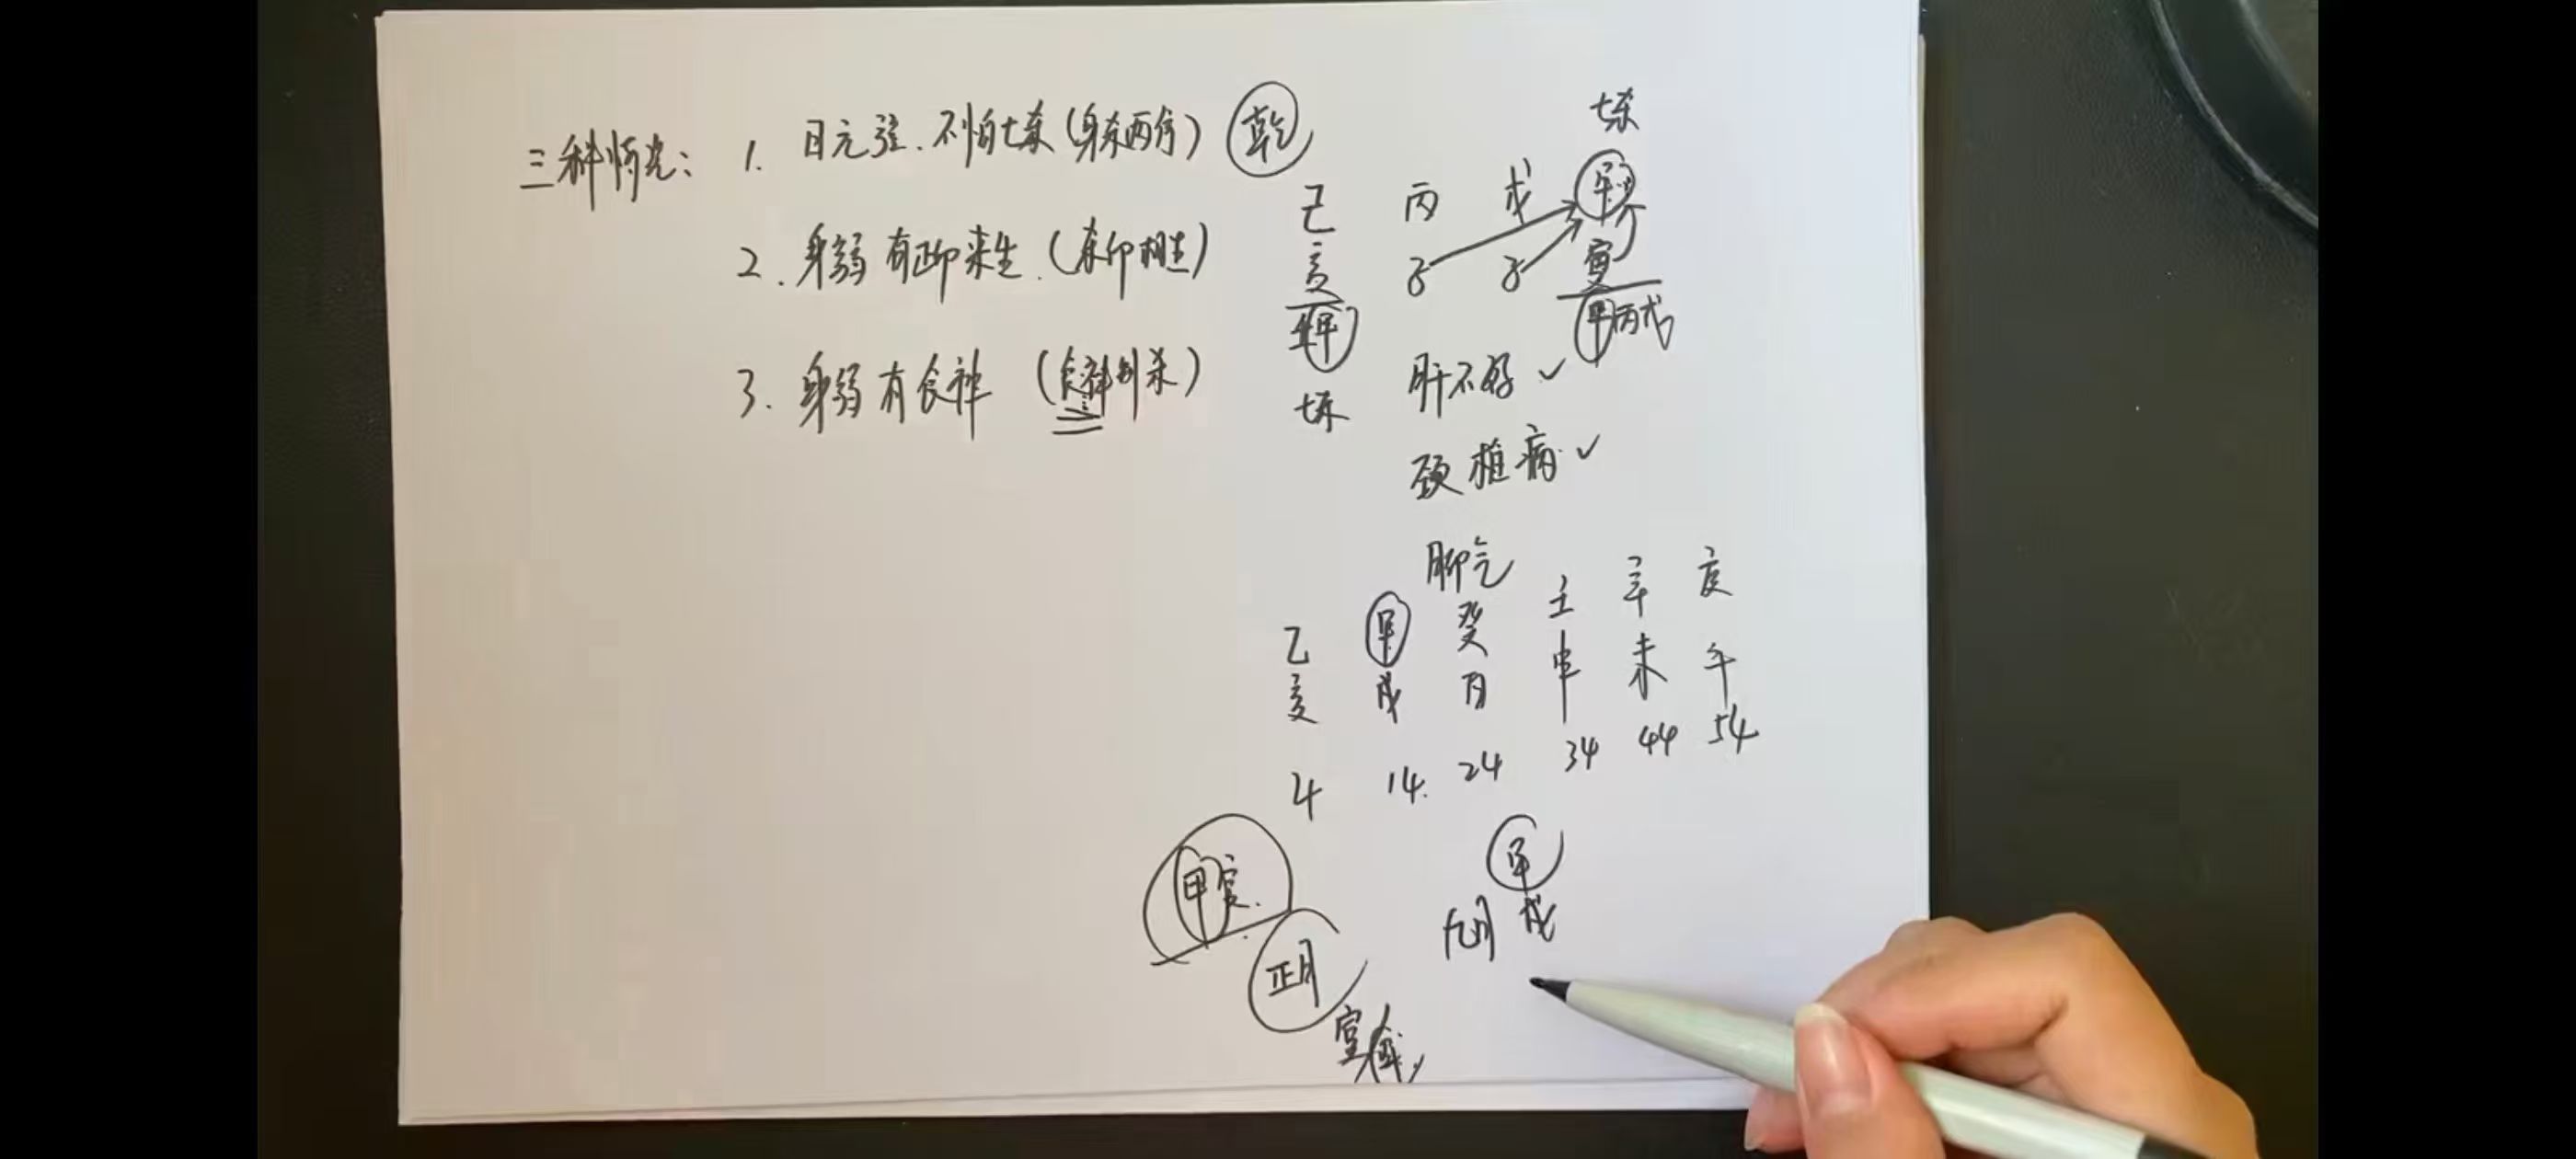 三种情况：1. 日元强.不怕七杀（身杀两停） 乾
2. 身弱有印来生.（杀印相生）
3. 身弱有食神 （食神制杀）
七杀
己 丙 戊 甲
亥 子 子 寅
壬甲 甲丙戊
七杀
肝不好✓
颈椎病✓
卯
乙 甲 癸 壬 辛 庚
亥 戌 酉 申 未 午
4 14. 24 34 44 54
甲寅. 甲
戌
正月 九月